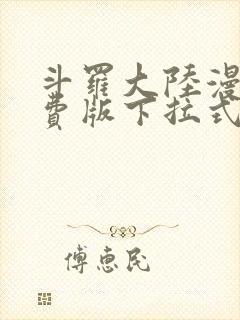 斗羅大陸漫
費版下拉式
傅惠民